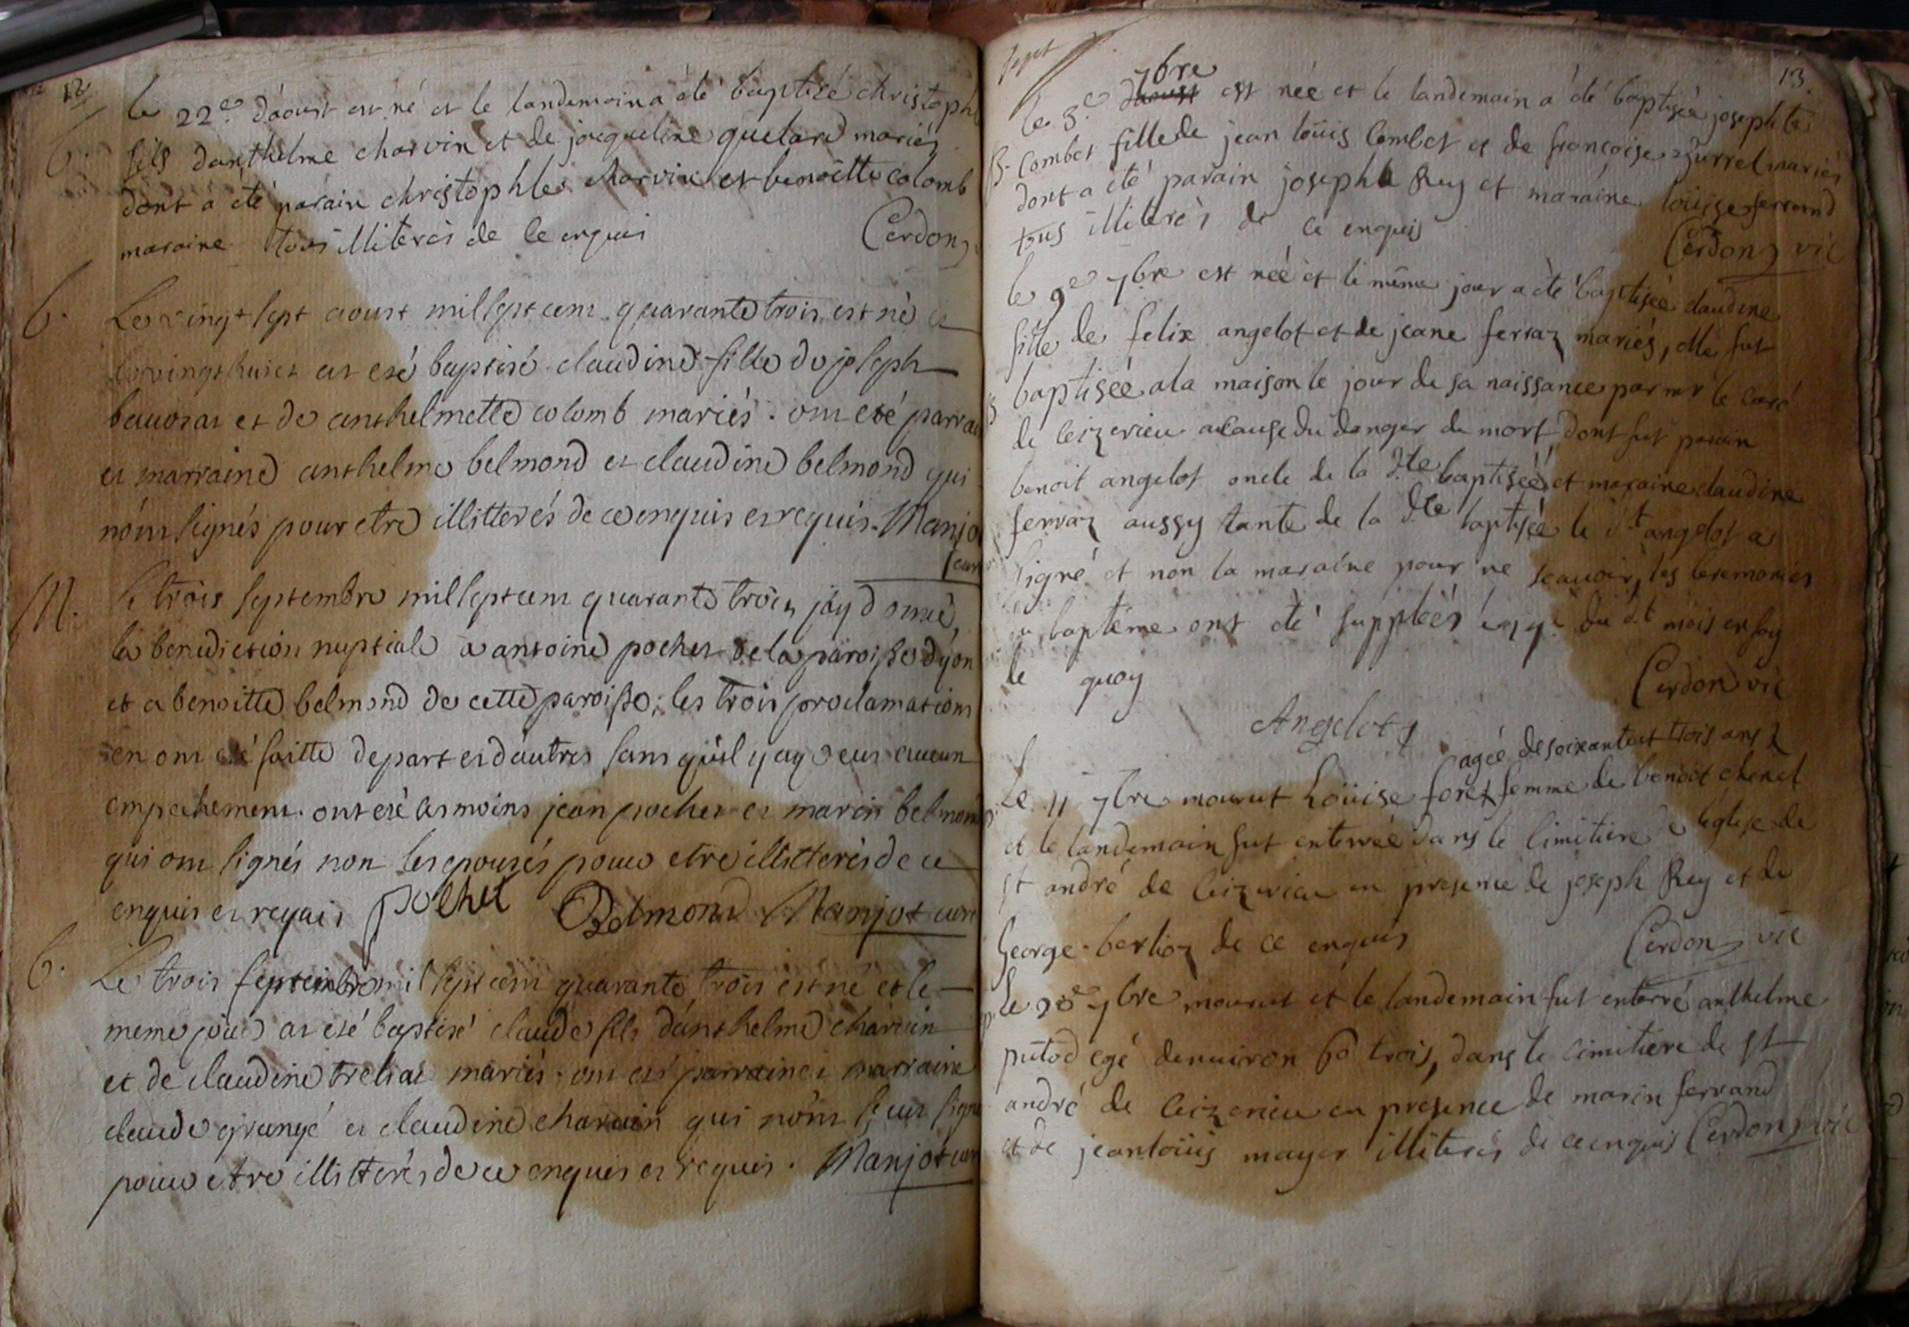 12
le 22e d'aoust est né et le landemain a été baptisé christophle
B. fils d'anthelme charvin et de jacqueline quelard mariés
dont a été parain christophle charvin et benoitte colomb
maraine tous illiterés de ce enquis Cerdon
B. Le vingt sept aoust mil sept cent quarante trois est né et
le vingt huict at eté baptisé claudine fille de joseph
et de anthelmette colomb mariés. ont eté parrain
et marraine anthelme belmond et claudine belmond qui
n'ont signés pour etre illitterés de ce enquis et requis. Manjot
curé
M. Le trois septembre mil sept cent quarante trois j'ay donné
la benediction nuptiale a antoine pochet de la paroisse d'yon
et a benoitte belmond de cette paroisse; les trois proclamations
en ont eté faitte de part et d'autres sans qu'il y aye eut aucun
empechement. ont eté tesmoins jean pochet et marin belmond
qui ont signés non les epousés pour etre illitterés de ce
enquis et requis pochet Belmond Manjot curé
B. Le trois septembre mil sept cent quarante trois est né et le
meme jour at eté baptisé claude fils d'anthelme charvin
et de claudine mariés. ont eté parrain et marraine
claude grangé et claudine charvin qui n'ont signé
pour etre illitterés de ce enquis et requis. Manjot curé
sept 13
7bre
le 3e daoust est née et le landemain a été baptisée josephte
B. Combet fille de jean loüis Combet et de françoise mariés
dont a été parain joseph Rey et maraine loüise ferrand
tous illiterés de ce enquis Cerdon vic
le 9e 7bre est née et le même jour a été baptisée claudine
fille de felix angelot et de jeane ferraz mariés, elle fut
B baptisée a la maison le jour de sa naissance par mr le curé
de Ceizerieu a cause du danger de mort dont fut parain
benoit angelot oncle de la dte baptisée et maraine claudine
ferraz aussy tante de la dte baptisée le dt angelot a
signé et non la maraine pour ne scauoir, les ceremonies
du baptême ont été suppléés le du dt mois en foy
de quoy Cerdon vic
Angelot
agée de soixante et trois ans
Le 11 7bre mourut Loüise foret femme de benoit chenet
et le landemain fut enterrée dans le cimitiere de leglise de
st andré de Ceizerieu en presence de joseph Rey et de
George berlioz de ce enquis Cerdon vic
Le 7bre mourut et le landemain fut enterré anthelme
putod egé denuiron 60 trois, dans le cimitiere de st
andré de Ceizerieu en presence de marin ferrand
et de jean loüis mayer illiterés de ce enquis Cerdon vic